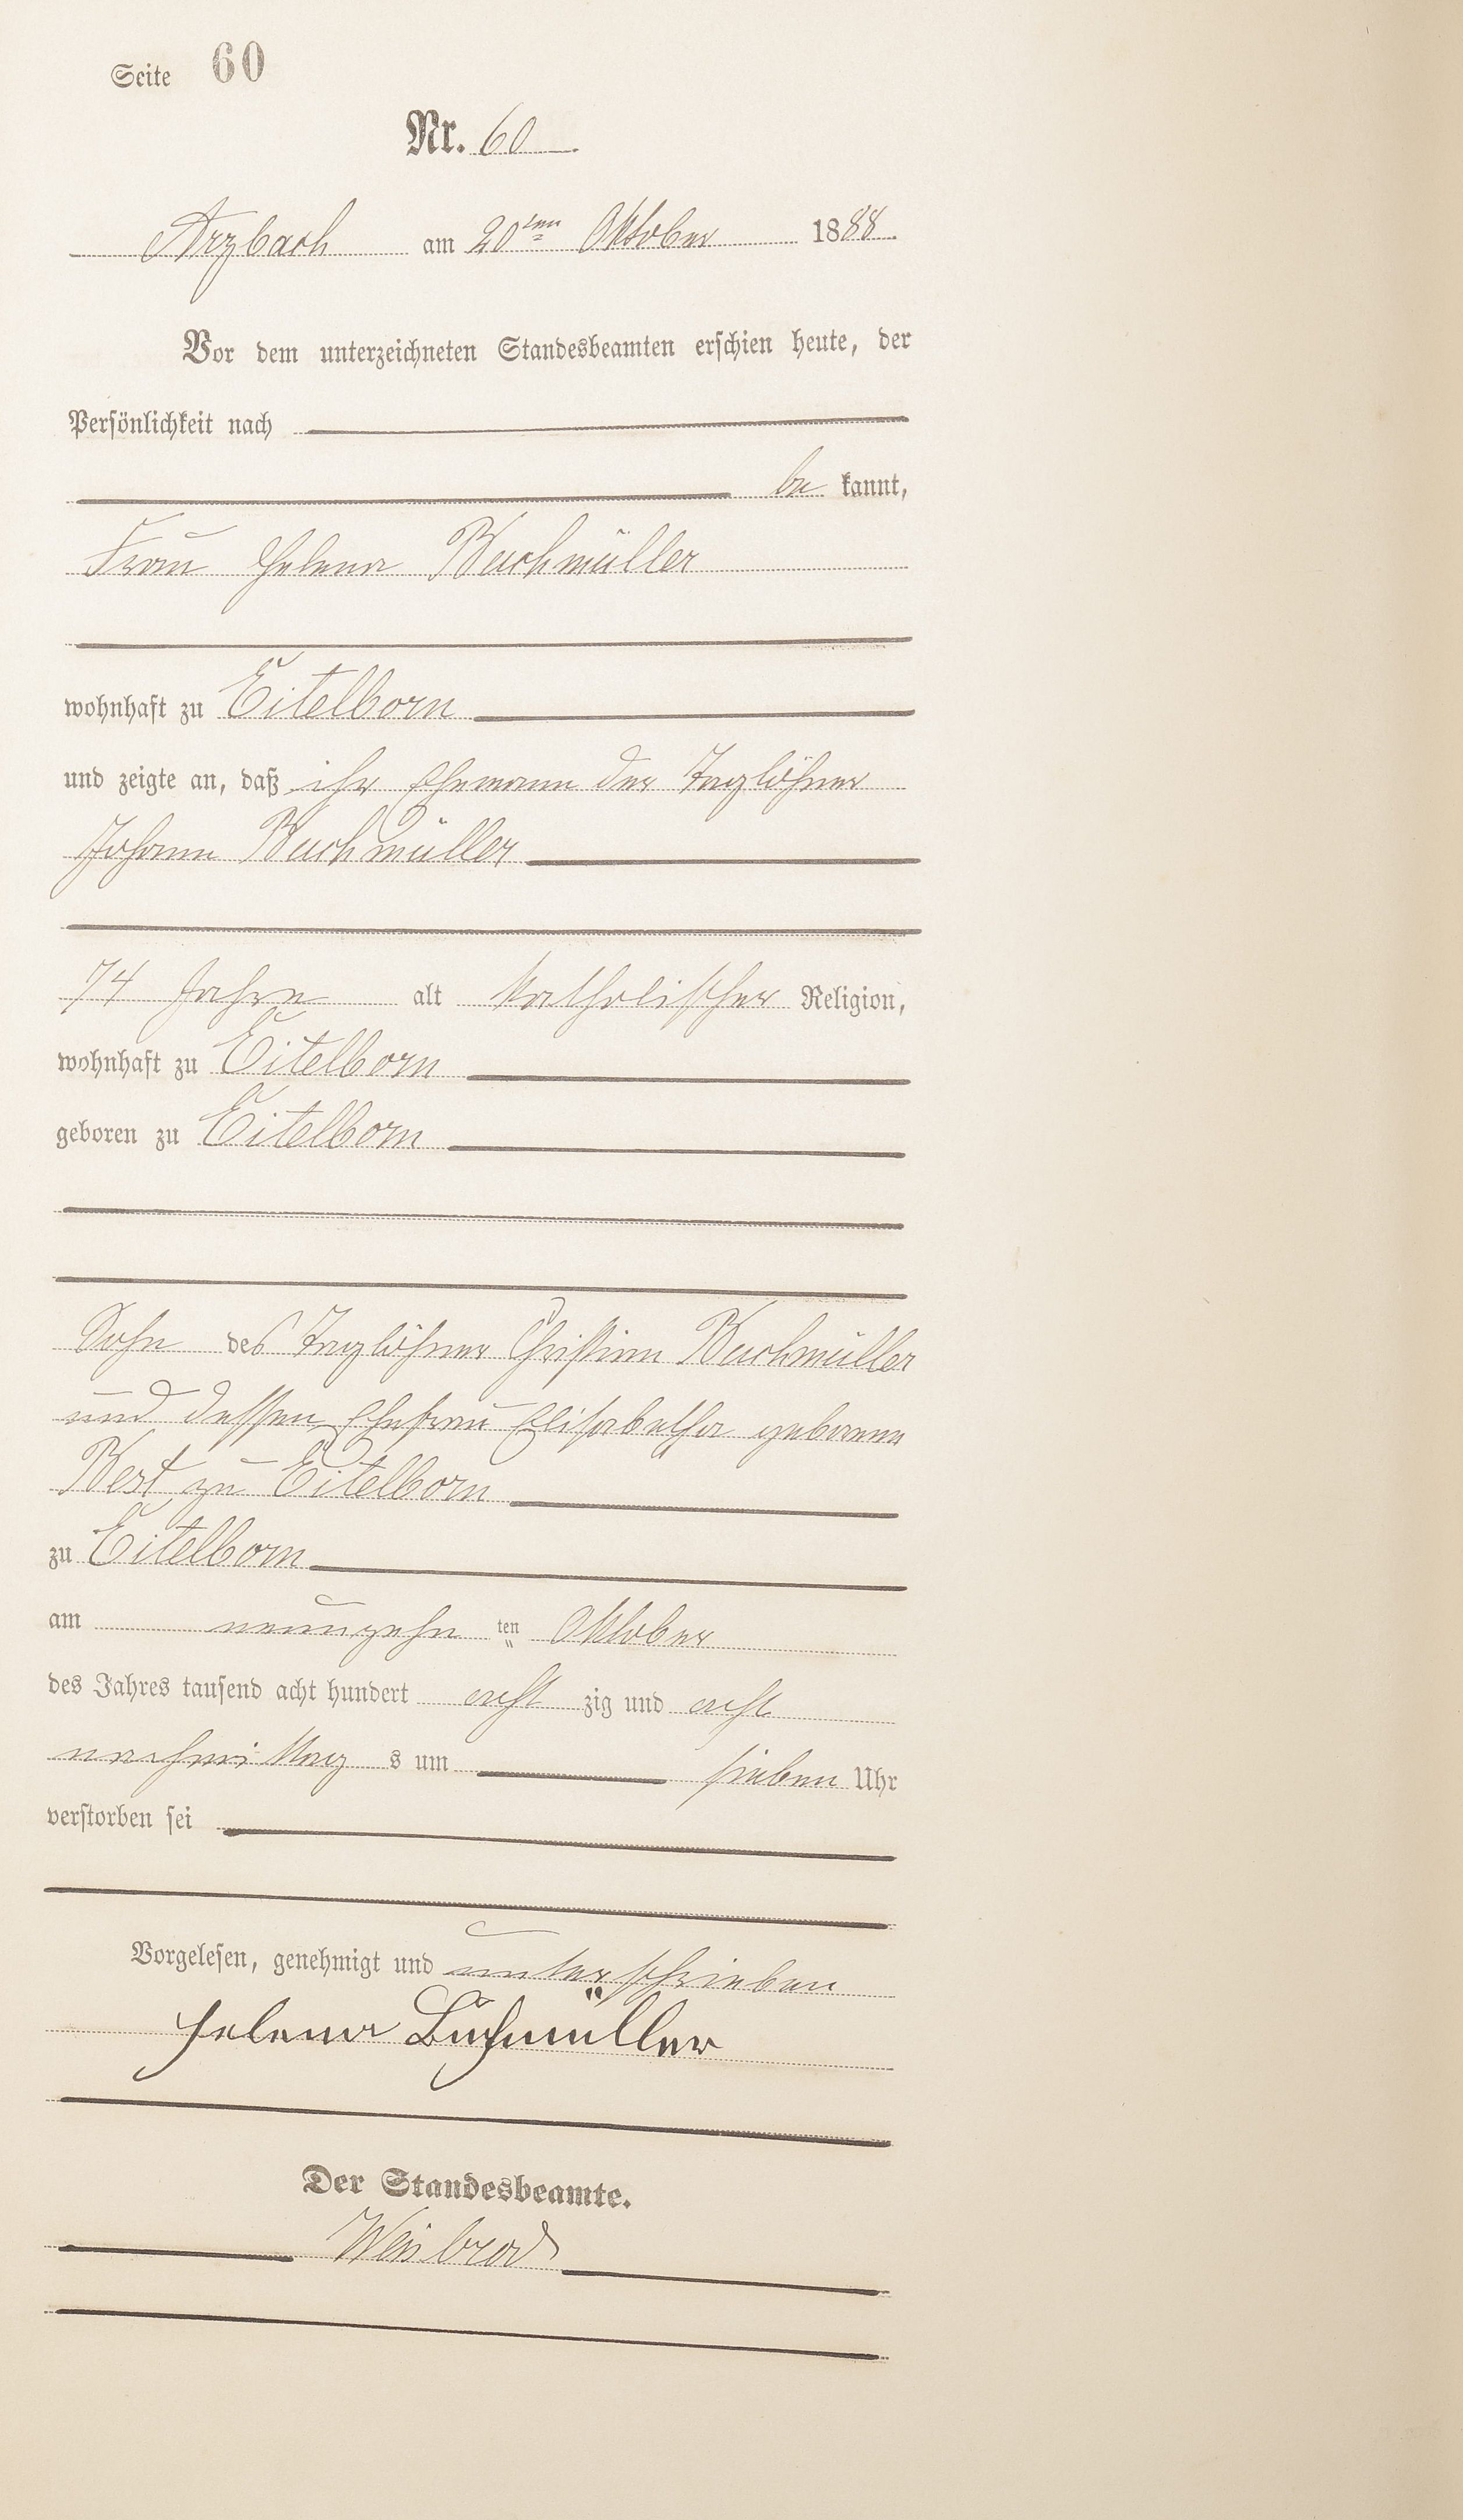 Seite 60
Nr. 60
Arzbach am 20ten Oktober 1888.
Vor dem unterzeichneten Standesbeamten erschien heute, der
Persönlichkeit nach
be kannt,
Frau Helena Buchmüller
wohnhaft zu Eitelborn
und zeigte an, daß ihr Ehemann der Taglöhner
Johann Buchmüller
74 Jahre alt katholischer Religion,
wohnhaft zu Eitelborn
geboren zu Eitelborn
Sohn des Taglöhner Christian Buchmüller
und dessen Ehefrau Elisabetha geborene
Best zu Eitelborn
zu Eitelborn
am neunzehn ten Oktober
des Jahres tausend acht hundert acht zig und acht
nachmittag s um sieben Uhr
verstorben sei
Vorgelesen, genehmigt und unterschrieben
Helena Buchmüller
Der Standesbeamte.
Weisbrod